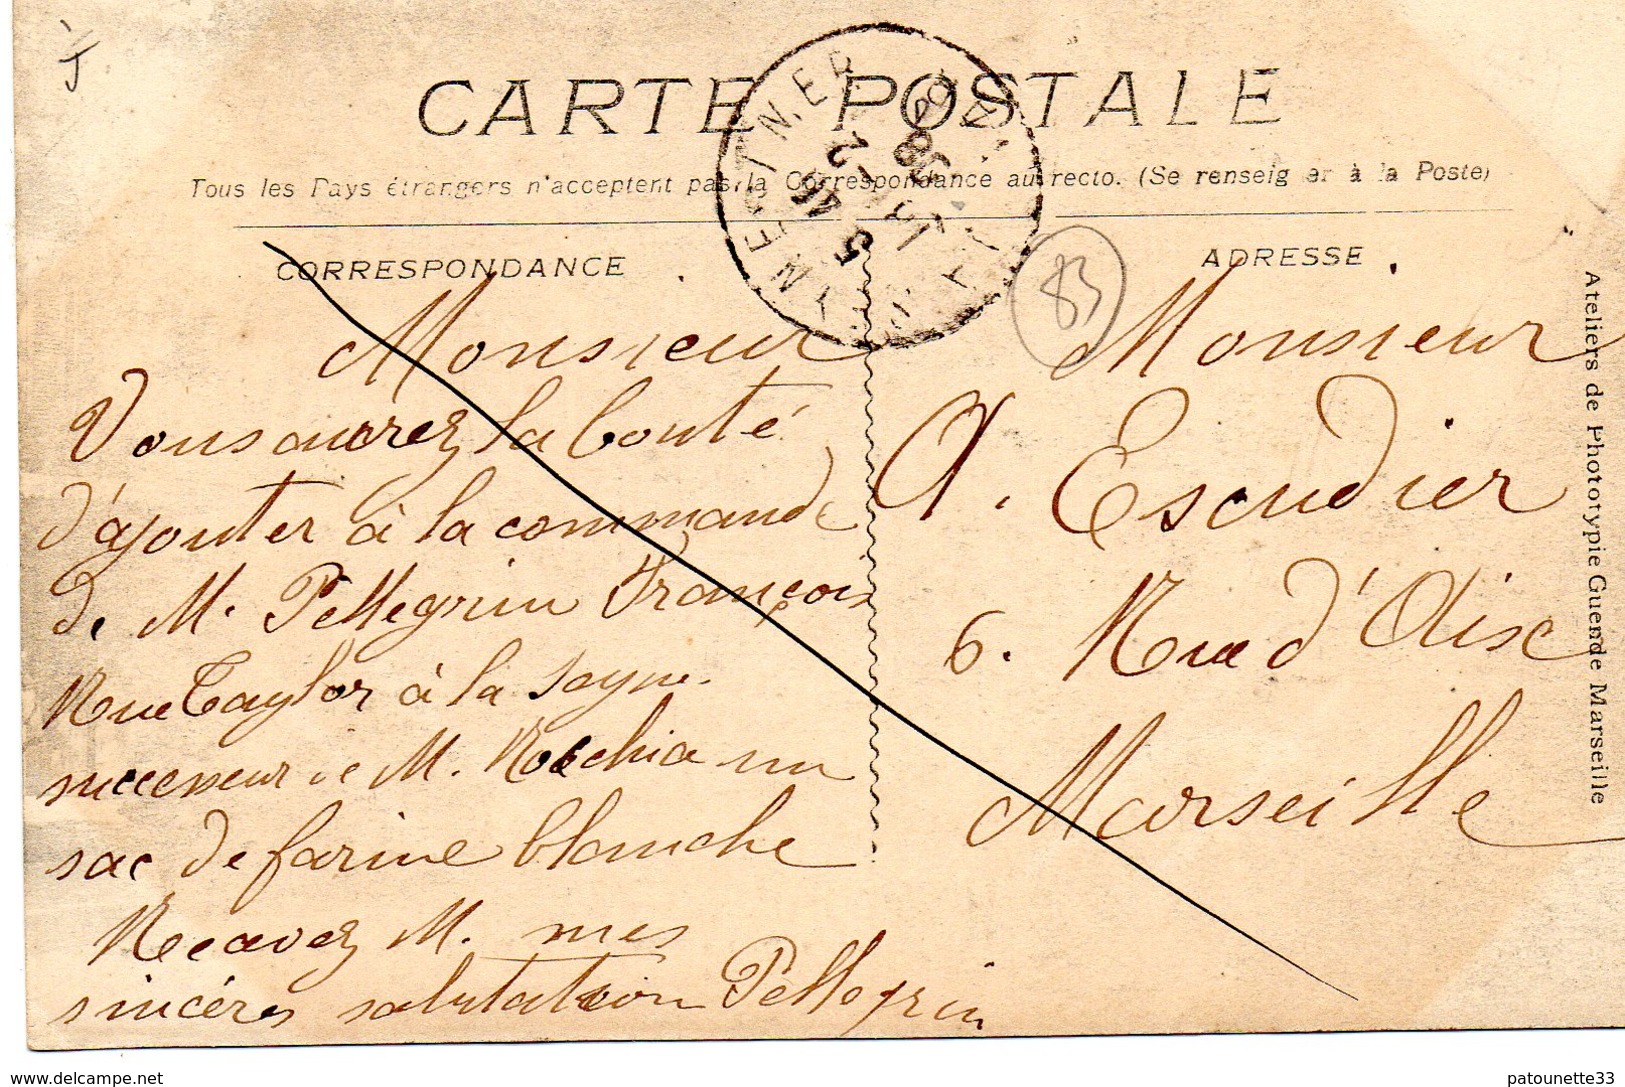 J
CARTE POSTALE
Tous les Pays étrangers n'acceptent pas la Correspondance au recto. (Se renseigner à la Poste)
CORRESPONDANCE
Monsieur
Vous aurez la bonté
d'ajouter à la commande
de M. Pellegrin François
Rue Taylor à la Seyne.
successeur de M. Rochia un
sac de farine blanche
Recevez M. mes
sincéres salutation Pellegrin
83
ADRESSE
Monsieur
A. Escudier
6. Rue d'Aix
Marseille
Ateliers de Phototypie Guende Marseille
www.delcampe.net
patounette33